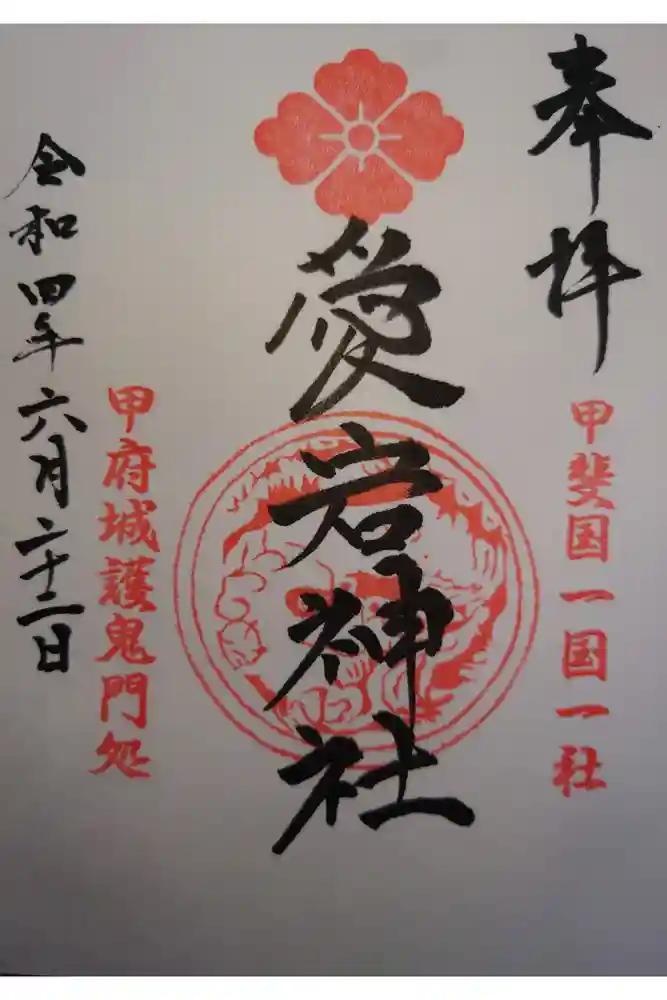 奉拝
甲斐国一国一社
愛宕神社
甲府城護鬼門処
令和四年六月二十二日